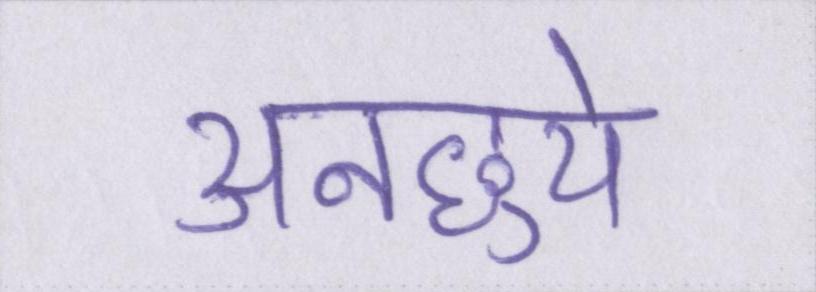 अनछुये